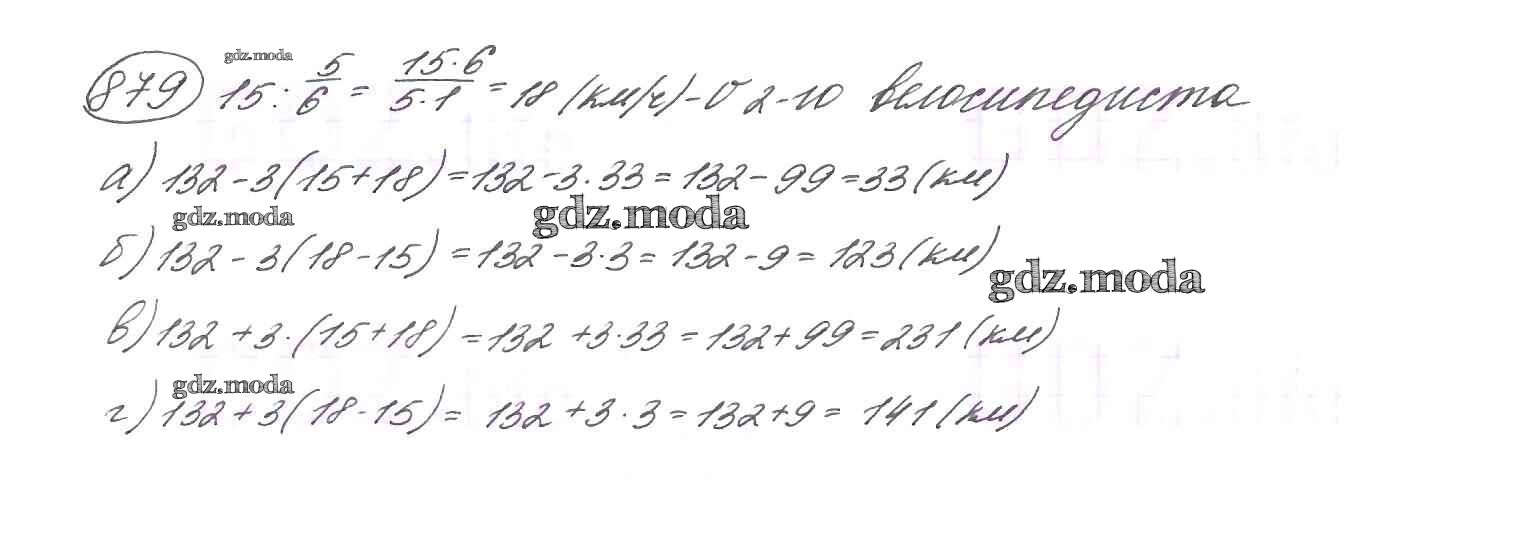 gdz.moda
879 15 : 5/6 = 15·6/5·1 = 18 (км/ч) - v 2-го велосипедиста
а) 132 - 3(15+18) = 132 - 3·33 = 132 - 99 = 33 (км)
gdz.moda gdz.moda
б) 132 - 3(18-15) = 132 - 3·3 = 132 - 9 = 123 (км)
gdz.moda
в) 132 + 3·(15+18) = 132 + 3·33 = 132 + 99 = 231 (км)
gdz.moda
г) 132 + 3(18-15) = 132 + 3·3 = 132 + 9 = 141 (км)